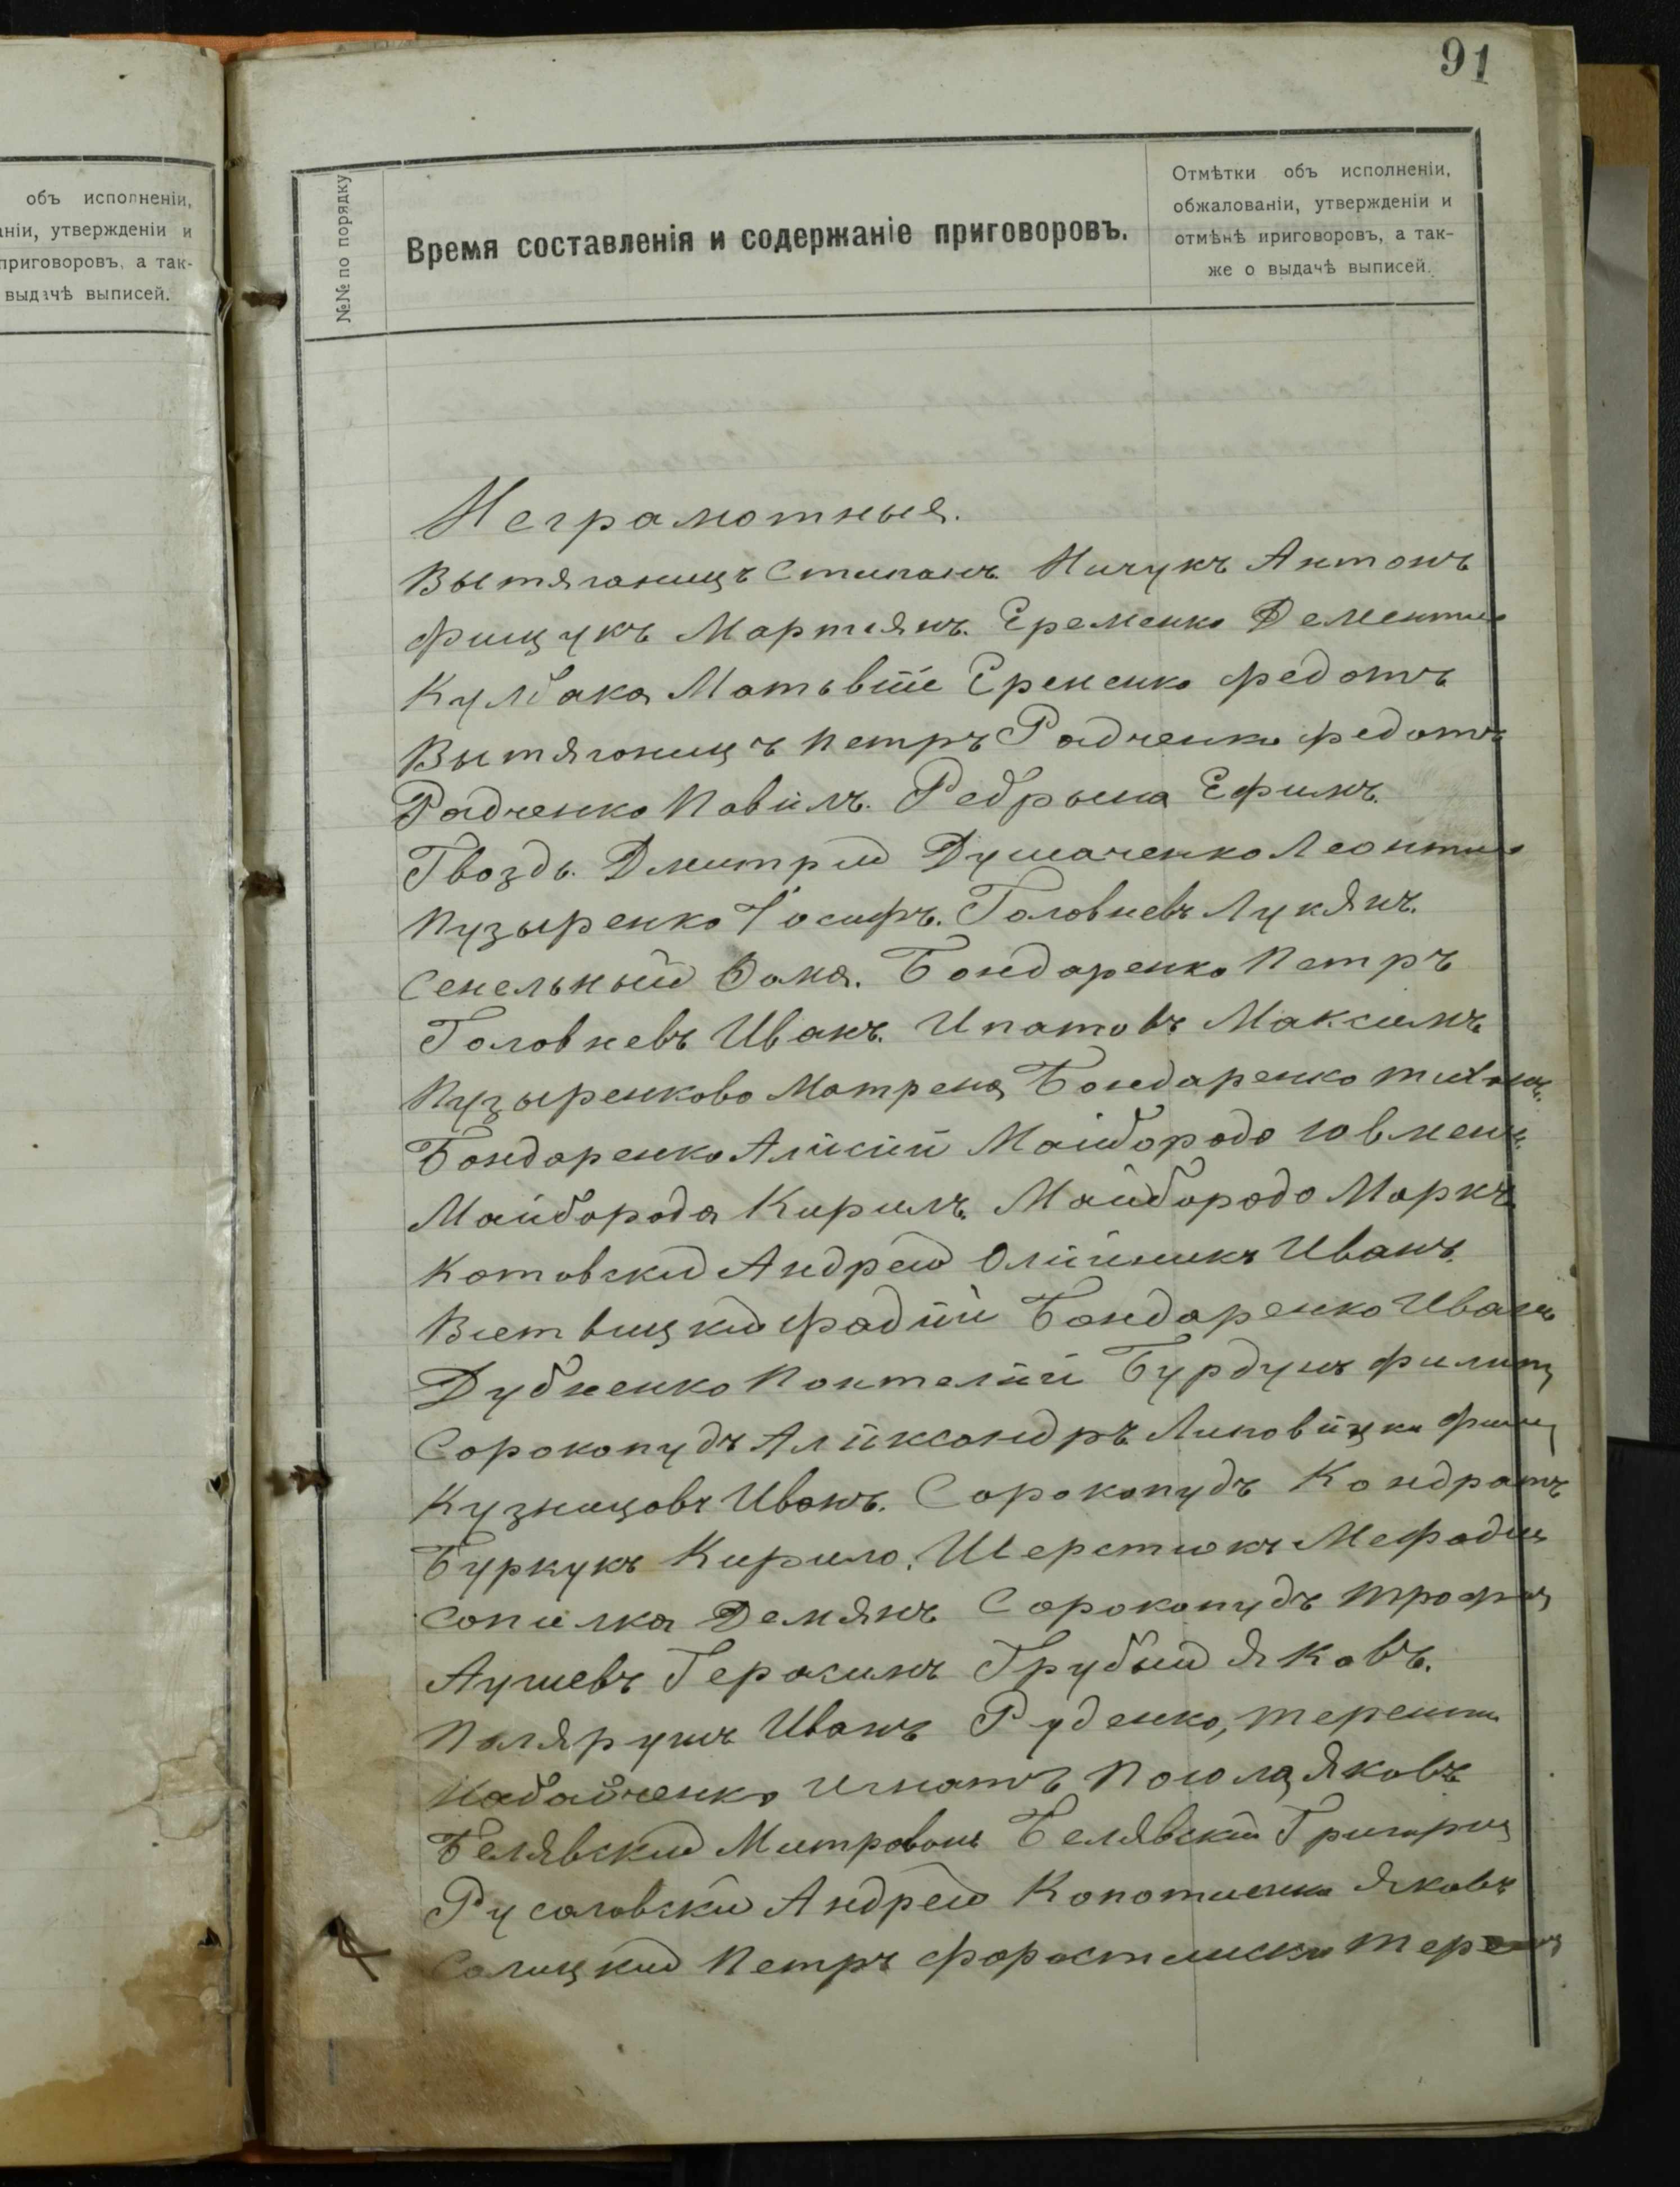 91
объ исполненіи,
аніи, утвержденіи и
приговоровъ, а так-
выдачѣ выписей.
№№ по порядку
Время составленія и содержаніе приговоровъ.
Отмѣтки объ исполненіи,
обжалованіи, утвержденіи и
отмѣнѣ приговоровъ, а так-
же о выдачѣ выписей.
Неграмотныя.
Вытяганецъ Степанъ. Ничукъ Антонъ
Фищукъ Мартіянъ. Еременко Дементие
Кулбака Матьвій Еременко Федотъ
Вытяганецъ Петръ Радченко Федотъ
Радченко Павилъ. Ребрына Ефимъ.
Гвоздь. Дмитрий Думаченко Леонтие
Пузыренко Іосифъ. Головневъ Лукянъ.
Сенельный Фома. Бондаренко Петръ
Головневъ Иванъ. Ипатовъ Максимъ
Пузыренкова Матрена Бондаренко Тихонъ.
Бондаренко Алисий Майборода
Майборода Кирилъ Майборода Маркъ
Котовский Андрей Олійникъ Иванъ.
Фадій Бондаренко Иванъ
Дубненко Пантелій Бурдунъ Филип
Сорокопудъ Алиександръ
Кузнецовъ Иванъ. Сорокопудъ Кондратъ
Буркукъ Кирило. Шерстюкъ Мефодий
Сопилка Демянъ Сорокопудъ Трофим
Аушевъ Герасимъ Грубый Яковъ.
Иванъ Руденко, Терентий
Набойченко Игнатъ Яковъ
Белявский Митрован Белявский Григорий
Русаловский Андрей Копотиенко Яковъ
Салицкий Петръ Терен